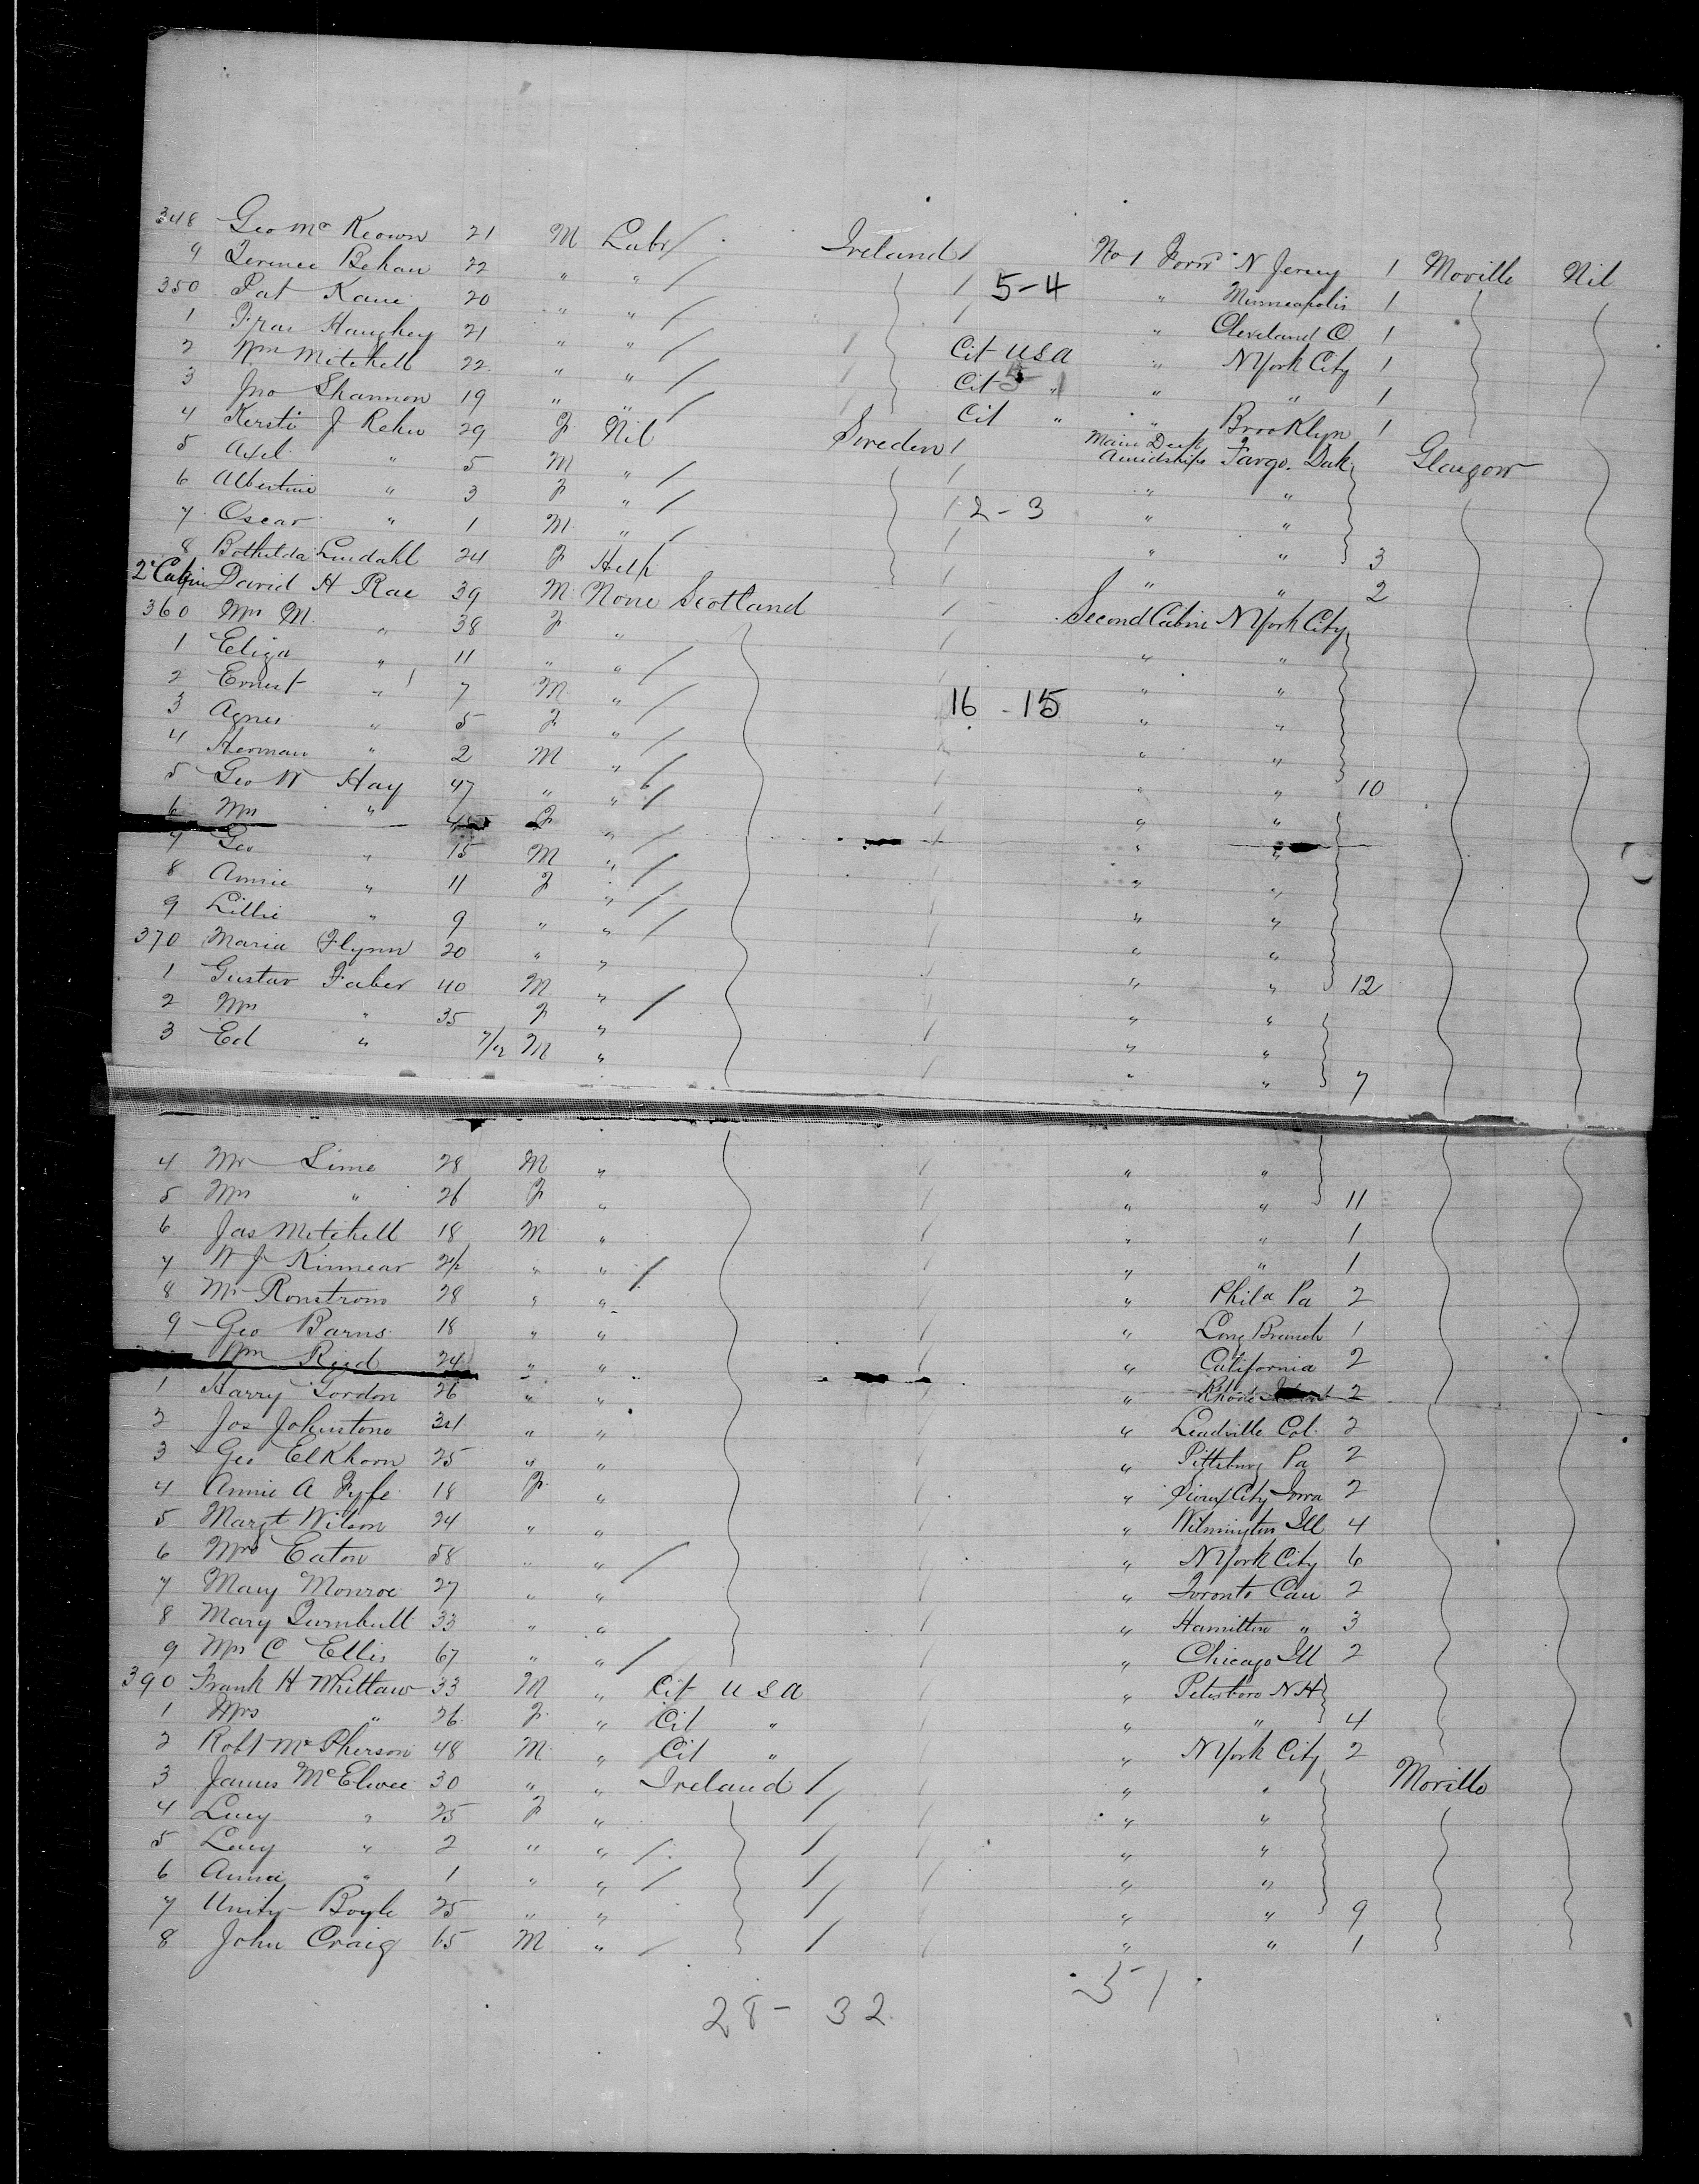 348 Geo Mc Keown 21 M Labr Ireland No 1 Forw N Jersey 1 Moville Nil
9 Terence Behan 22 " " 5-4 " Minneapolis 1
350 Pat Kane 20 " " " Cleveland O 1
1 Fras Haughey 21 " " Cit USA " N York City 1
2 Wm Mitchell 22 " " Cit " " " 1
3 Jno Shannon 19 " " Cit " " Brooklyn 1
4 Kersti J Rehn 29 F Nil Sweden Main Deck Amidships Fargo. Dak Glasgow
5 Axel " 5 M " " "
6 Albertine " 3 F " 2-3 " "
7 Oscar " 1 M " " " 3
8 Bothilda Lindahl 24 F Help " " 2
2d Cabin David H Rae 39 M None Scotland Second Cabin N York City
360 Mrs M. " 38 F " " "
1 Eliza " 11 " " " "
2 Ernest " 7 M " 16 - 15 " "
3 Agnes " 5 F " " "
4 Herman " 2 M " " " 10
5 Geo W Hay 47 " " " "
6 Mrs " F " " "
7 Geo " 15 M " " "
8 Annie " 11 F " " "
9 Lillie " 9 " " " "
370 Maria Flynn 20 " " " " 12
1 Gustav Faber 40 M " " "
2 Mrs " 35 F " " "
3 Ed " 7/12 M " " " 7
4 Mr Sime 28 M " " "
5 Mrs " 26 F " " " 11
6 Jas Mitchell 18 M " " " 1
7 W J Kinnear " " " " 1
8 Mr Ronstrom 28 " " " Phila Pa 2
9 Geo Barns 18 " " " Long Branch 1
Wm Reid 24 " " " California 2
1 Harry Gordon 26 " " " Rhode Island 2
2 Jos Johnstone " " " Leadville Col. 2
3 Geo Elkhorn 25 " " " Pittsburg Pa 2
4 Annie A Fyfe 18 F " " Sioux City Iowa 2
5 Margt Wilson 24 " " " Wilmington Ill 4
6 Mrs Eaton 58 " " " N York City 6
7 Mary Monroe 27 " " " Toronto Can 2
8 Mary Turnbull 33 " " " Hamilton " 3
9 Mrs C Ellis 67 " " " Chicago Ill 2
390 Frank H Whittaw 33 M " Cit U S A " Petesboro N H
1 Mrs " 26 F " Cit " " " 4
2 Robt McPherson 48 M " Cit " " N York City 2
3 James McElwee 30 " " Ireland " " Moville
4 Lucy " 25 F " " "
5 Lucy " 2 " " " "
6 Anna " 1 " " " "
7 Unity Boyle 25 " " " " 9
8 John Craig 65 M " " " 1
28 - 32 51